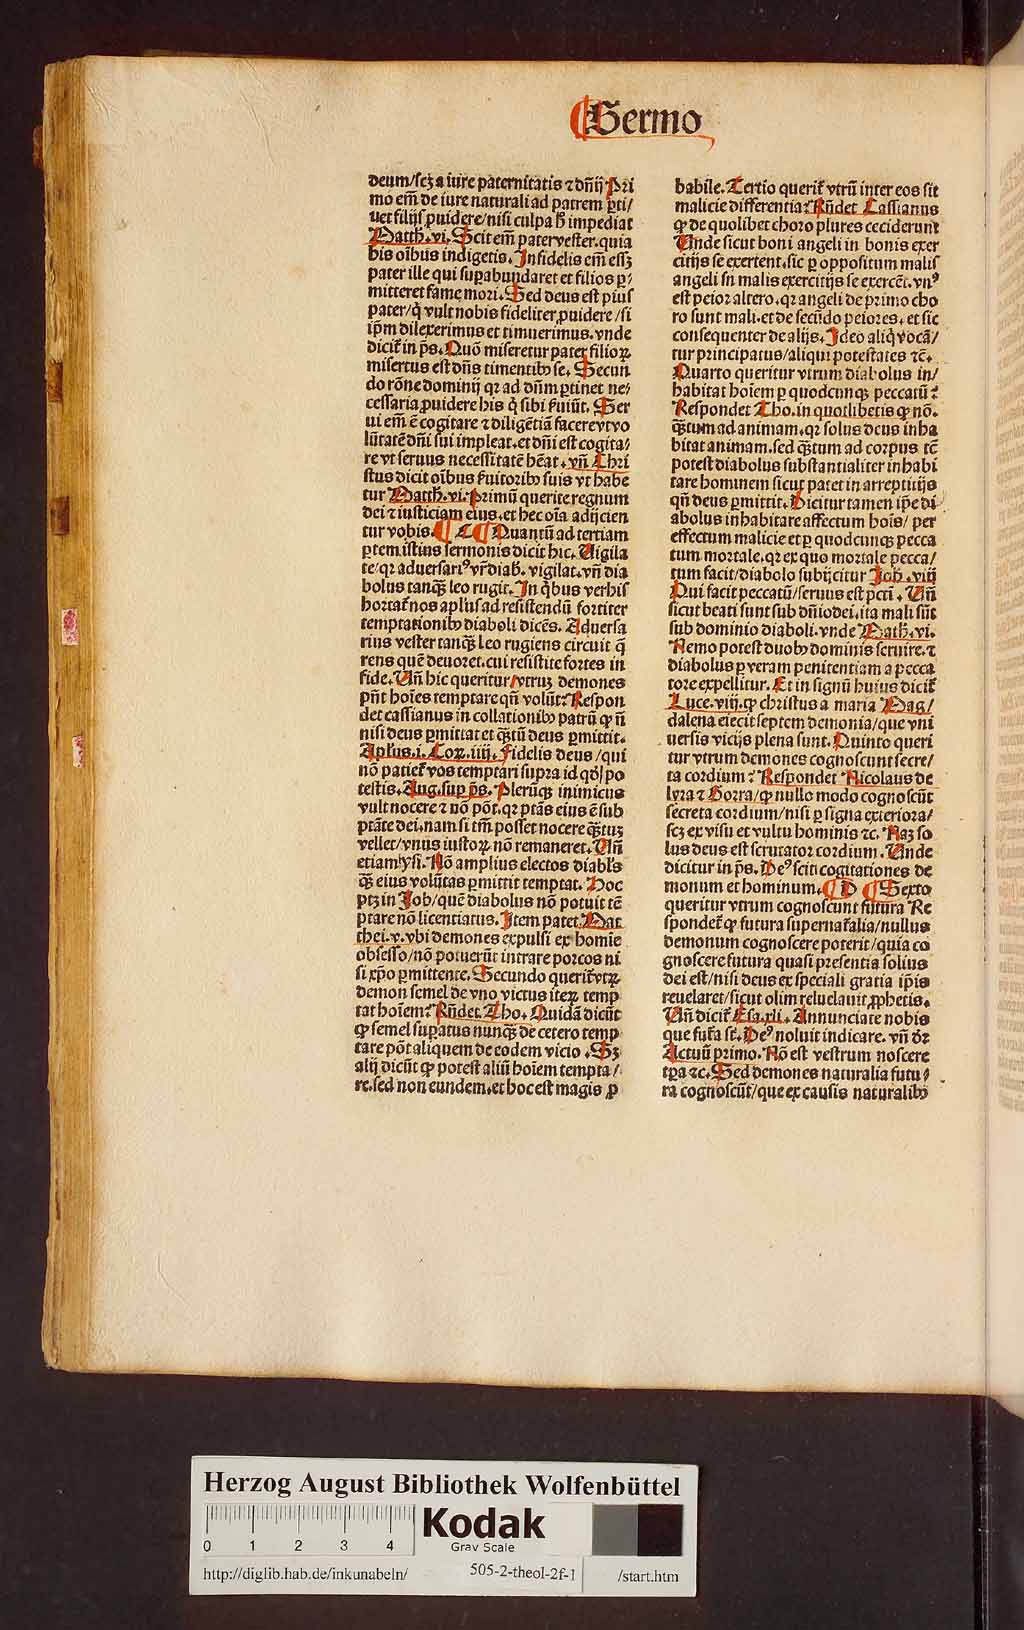 Sermo
deum/scꝫ a iure paternitatis ⁊ dñij Pri
mo em̃ de iure naturali ad patrem ꝑti/
uet filijs ꝓuidere/nisi culpa h̃ impediat
Matth̃.vi. Scit em̃ pater vester.quia
his oĩbus indigetis. Infidelis em̃ essꝫ
pater ille qui suꝑabundaret et filios ꝑ⸗
mitteret fame mori. Sed deus est pius
pater/q̃ vult nobis fideliter ꝓuidere/si
ip̃m dilexerimus et timuerimus.vnde
dicit̃ in p̃s. Quõ miseretur pater filioꝝ
misertus est dñs timentibꝰ se. Secun
do rõne dominij qꝛ ad dñm ꝑtinet ne⸗
cessaria ꝓuidere his q̃ sibi ẜuiũt. Ser
ui em̃ ẽ cogitare ⁊ diligẽtiã facere vt vo
lũtatẽ dñi sui impleat.et dñi est cogita⸗
re vt seruus necessitatẽ hẽat.vñ Chri
stus dicit oĩbus ẜuitoribꝰ suis vt habe
tur Matth̃.vi. Primũ querite regnum
dei ⁊ iusticiam eius.et hec oĩa adijcien
tur vobis. ¶ C ¶ Quantũ ad tertiam
ꝑtem.istius sermonis dicit hic. Uigila
te/qꝛ aduersariꝰ vr̃ diab̃. vigilat.vñ dia
bolus tanqꝫ leo rugit. In q̃bus verbis
hortat̃ nos apl̃us ad resistendũ fortiter
temptationibꝰ diaboli dicẽs. Aduersa
rius vester tanqꝫ leo rugiens circuit q̃
rens quẽ deuoret.cui resistite fortes in
fide. Uñ hic queritur/vtruꝫ demones
pñt hoĩes temptare qñ volũt: Respon
det cassianus in collationibꝰ patrũ ꝙ ñ
nisi deus ꝑmittat et q̃ꝫtũ deus ꝑmittit.
Apl̃us.i.Coꝝ.iiij. Fidelis deus/qui
nõ patiet̃ vos temptari supra id qđ po
testis. Aug.sup p̃s. Plerũqꝫ inimicus
vult nocere ⁊ nõ põt.qꝛ ptãs eius ẽ sub
ptãte dei.nam si tm̃ posset nocere q̃ꝫtuꝫ
vellet/vnus iustoꝝ nõ remaneret. Uñ
etiam ysi. Nõ amplius electos diabl̃s
q̃ꝫ eius volũtas ꝑmittit temptat. Hoc
ptꝫ in Job/quẽ diabolus nõ potuit tẽ
ptare nõ licentiatus. Item patet. Mat
thei.v.vbi demones expulsi ex homĩe
obsesso/nõ potuerũt intrare porcos ni
si xp̃o ꝑmittente. Secundo querit̃ vtꝝ
demon semel de vno victus iteꝝ temp
tat hoĩem: Rñdet. Tho. Quidã dicũt
ꝙ semel suꝑatus nunqꝫ de cetero temp
tare põt aliquem de eodem vicio. Sꝫ
alij dicũt ꝙ potest aliũ hoĩem tempta/
re.sed non eundem.et hoc est magis ꝓ
babile. Tertio querit̃ vtrũ inter eos sit
malicie differentia: Rñdet Cassianus
ꝙ de quolibet choro plures ceciderunt
Unde sicut boni angeli in bonis exer
citijs se exertent.sic ꝑ oppositum malis
angeli in malis exercitijs se exercẽt.vnꝰ
est peior altero.qꝛ angeli de primo cho
ro sunt mali.et de secũdo peiores.et sic
consequenter de alijs. Ideo aliq̃ vocã/
tur principatus/aliqui potestates ⁊c̃.
Quarto queritur vtrum diabolus in/
habitat hoĩem ꝑ quodcunqꝫ peccatũ:
Respondet Tho.in quotlibetis ꝙ nõ.
q̃ꝫtum ad animam.qꝛ solus deus inha
bitat animam.sed q̃ꝫtum ad corpus tẽ
potest diabolus substantialiter inhabi
tare hominem sicut patet in arreptitijs
qñ deus ꝑmittit. Dicitur tamen ip̃e di
abolus inhabitare affectum hoĩs/ per
effectum malicie et ꝑ quodcunqꝫ pecca
tum mortale.qꝛ ex quo mortale pecca/
tum facit/diabolo subijcitur Joh̃.viij
Qui facit peccatũ/seruus est pctĩ. Uñ
sicut beati sunt sub dñio dei.ita mali sũt
sub dominio diaboli.vnde Math̃.vi.
Nemo potest duobꝰ dominis seruire.⁊
diabolus ꝑ veram penitentiam a pecca
tore expellitur. Et in signũ huius dicit̃
Luce.viij.ꝙ christus a maria Mag/
dalena eiecit septem demonia/que vni
uersis vicijs plena sunt. Quinto queri
tur vtrum demones cognoscunt secre/
ta cordium: Respondet Nicolaus de
lyra ⁊ Gorra/ꝙ nullo modo cognoscũt
secreta cordium/nisi ꝑ signa exteriora/
scꝫ ex visu et vultu hominis ⁊c. Naꝫ so
lus deus est scrutator cordium. Unde
dicitur in p̃s. Deꝰ scit cogitationes de
monum et hominum. ¶ D ¶ Sexto
queritur vtrum cognoscunt futura Re
spondet̃ ꝙ futura supernat̃alia/nullus
demonum cognoscere poterit/quia co
gnoscere futura quasi presentia solius
dei est/nisi deus ex speciali gratia ip̃is
reuelaret/sicut olim reluelauit ꝓphetis.
Uñ dicit̃ Esa.xli. Annunciate nobis
que fut̃a st̃. Deꝰ noluit indicare. vñ dꝛ̃
Actuũ primo. Nõ est vestrum noscere
tꝑa ⁊c. Sed demones naturalia futu⸗
ra cognoscũt/que ex causis naturalibꝰ
Herzog August Bibliothek Wolfenbüttel
0 1 2 3 4
Kodak
Gray Scale
http://diglib.hab.de/inkunabeln/ 505-2-theol-2f-1 /start.htm